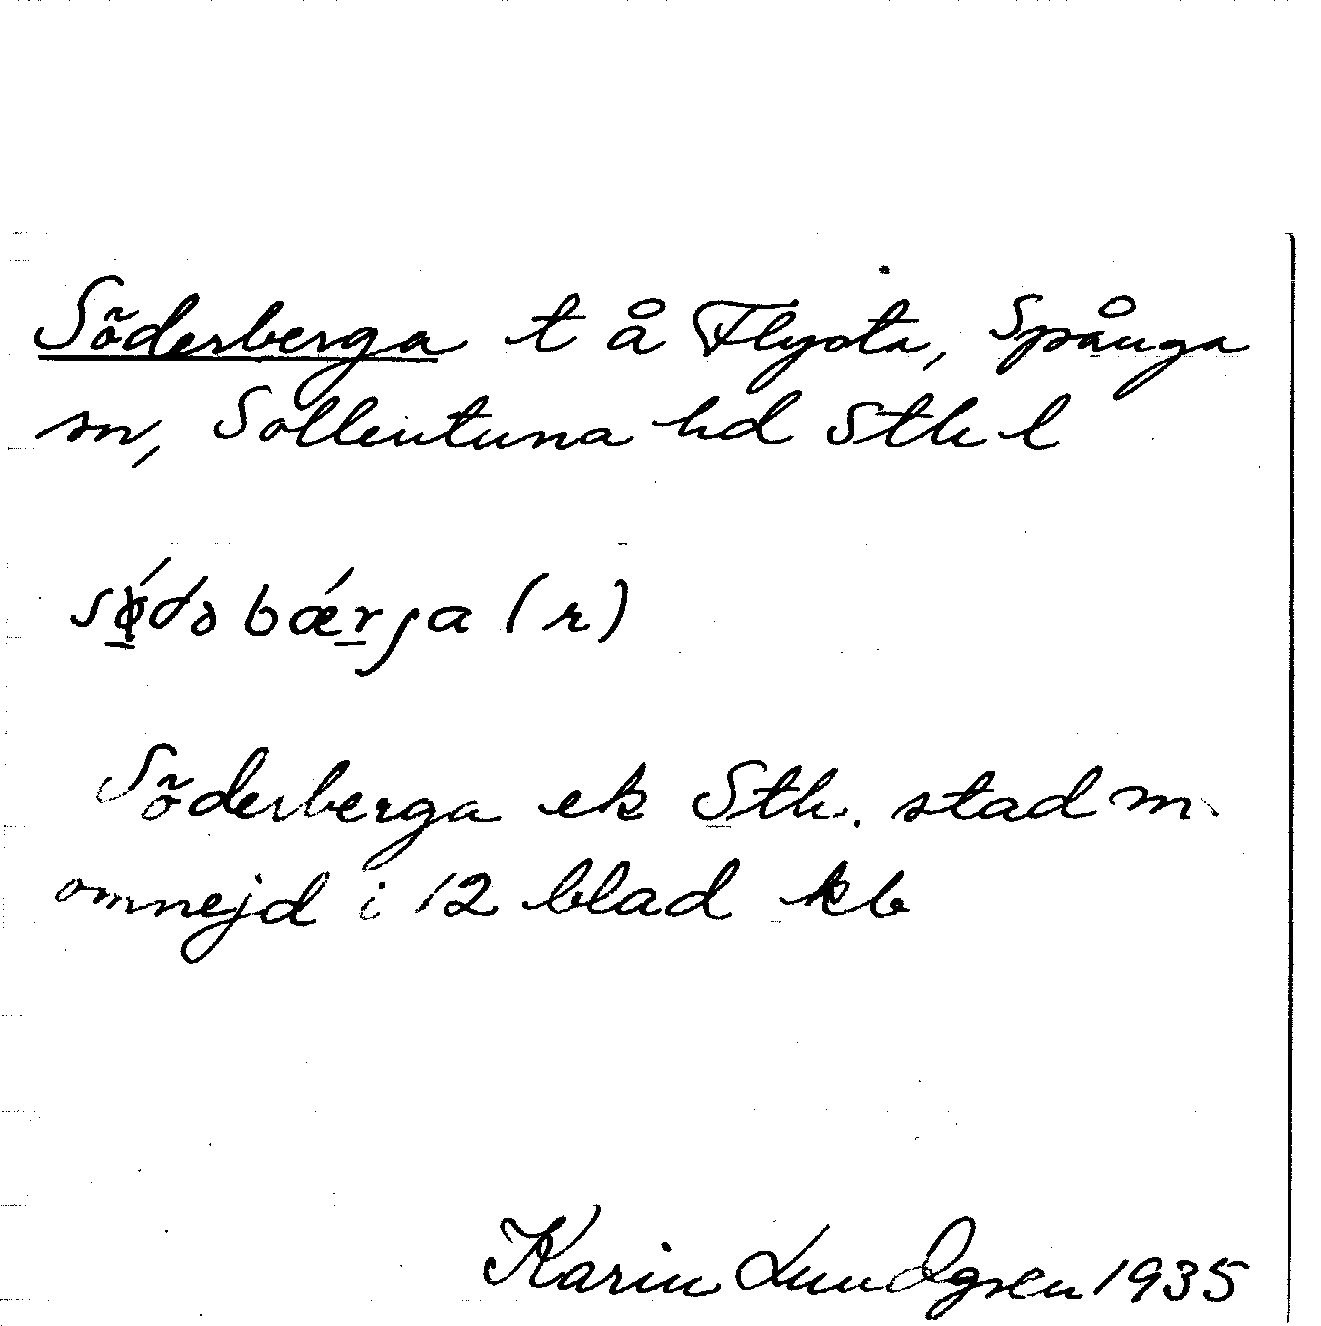 Söderberga t å Flysta, Spånga
sn, Sollentuna hd Sth l
sǿdəbǽrja (r)
Söderberga ek Sth. stad m.
omnejd i 12 blad kb
Karin Lundgren 1935